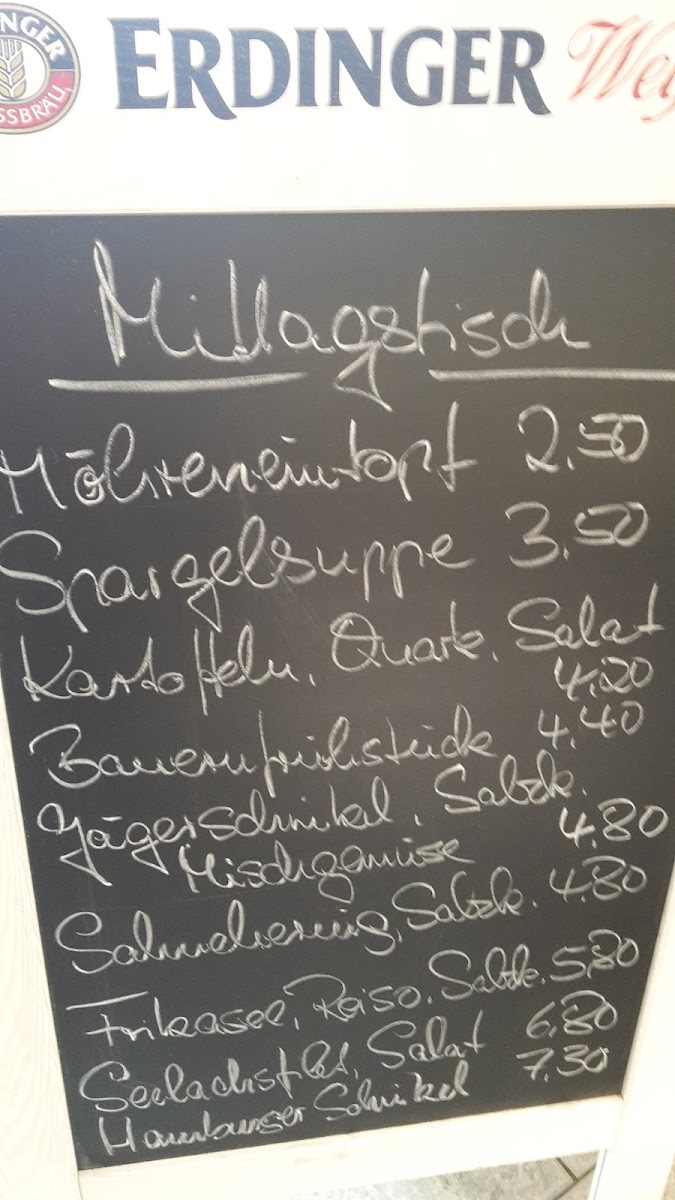 ERDINGER Wei
Mittagstisch
Möhreneintopf 2.50
Spargelsuppe 3.50
Kartoffeln, Quark, Salat
4.20
Bauernfrühstück 4.40
Jägerschnitzel, Salzk.
Mischgemüse 4.80
Sahnehering, Salzk. 4.80
Frikasee, Reiso. Salzk. 5,80
Seelachsfilet, Salat 6.80
Hamburger Schnitzel 7.30